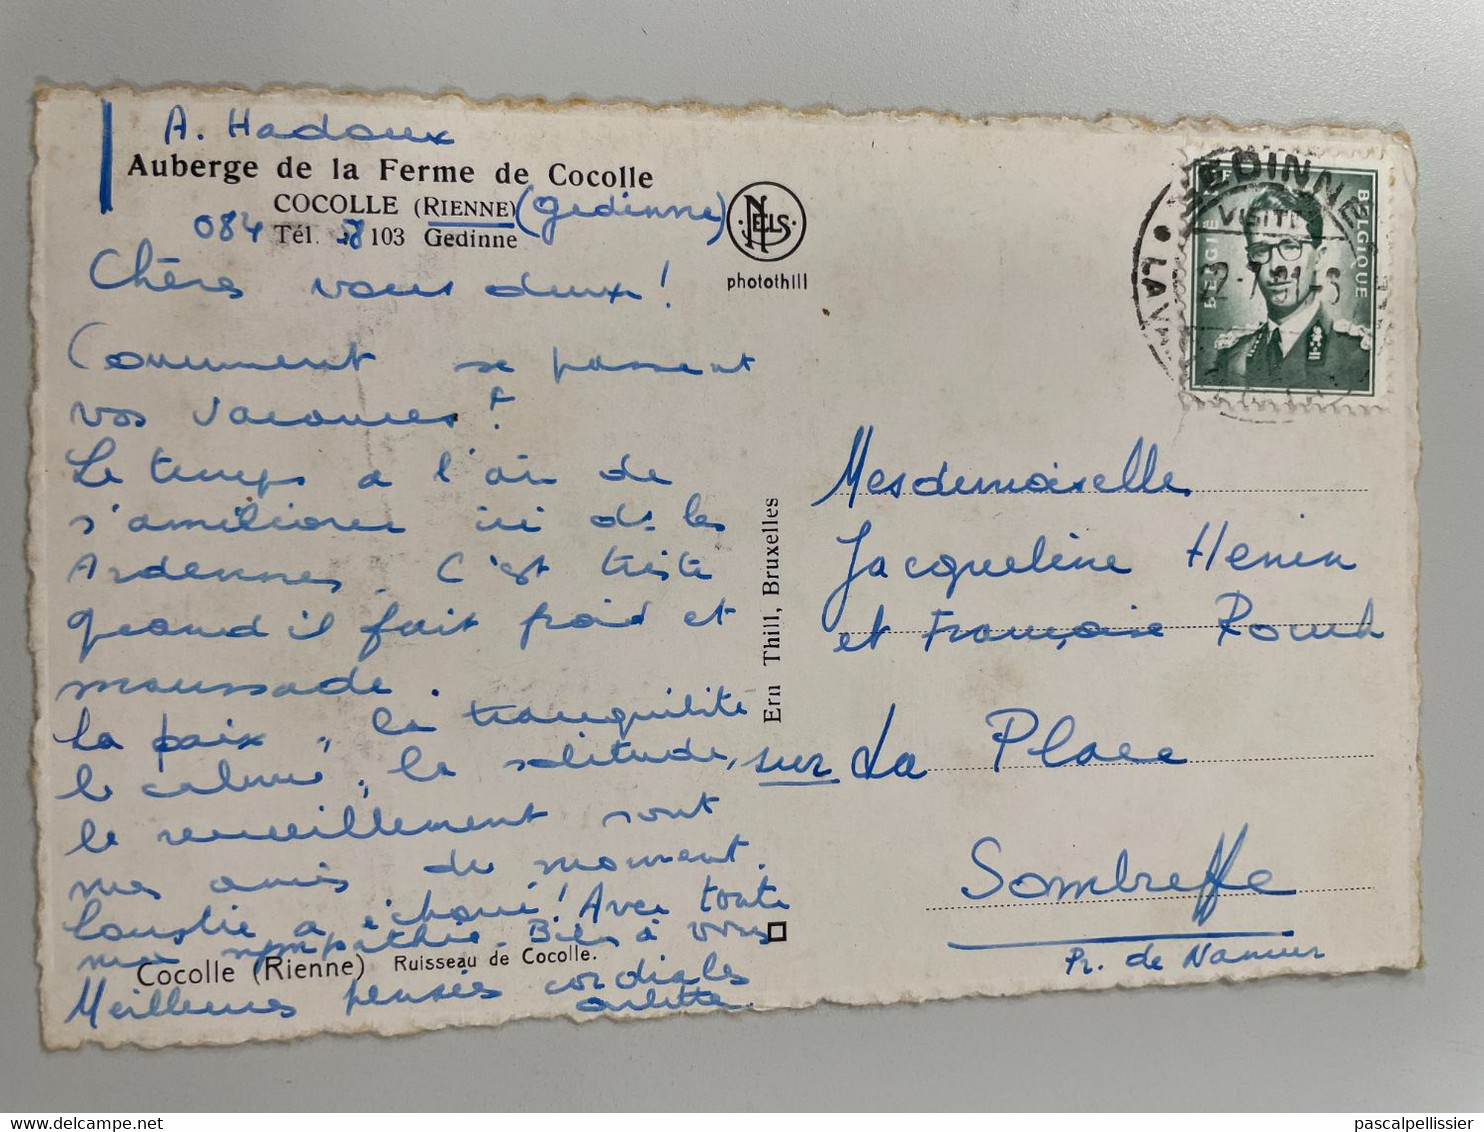 A. Hadoux
Auberge de la Ferme de Cocolle
COCOLLE (RIENNE) (Gedinne)
084 Tél. 58 103 Gedinne
NELS
photothill
Chères vous deux!
Comment se passent
vos vacances?
Le temps a l'air de
s'améliorer ici ds les
Ardennes. C'est triste
quand il fait froid et
maussade.
La paix, la tranquilité
le calme, la solitude,
le recueillement sont
mes amis du moment.
a échoué! Avec toute
ma sympathie. Bien à vous
Cocolle (Rienne) Ruisseau de Cocolle.
Meilleures pensées cordiales
arlette.
Ern Thill, Bruxelles
GEDINNE
VISITE
22-7-61-
BELGIË BELGIQUE
Mesdemoiselle
Jacqueline Henin
et Françoise
sur La Place
Sombreffe
Pr. de Namur
delcampe.net
pascalpellissier